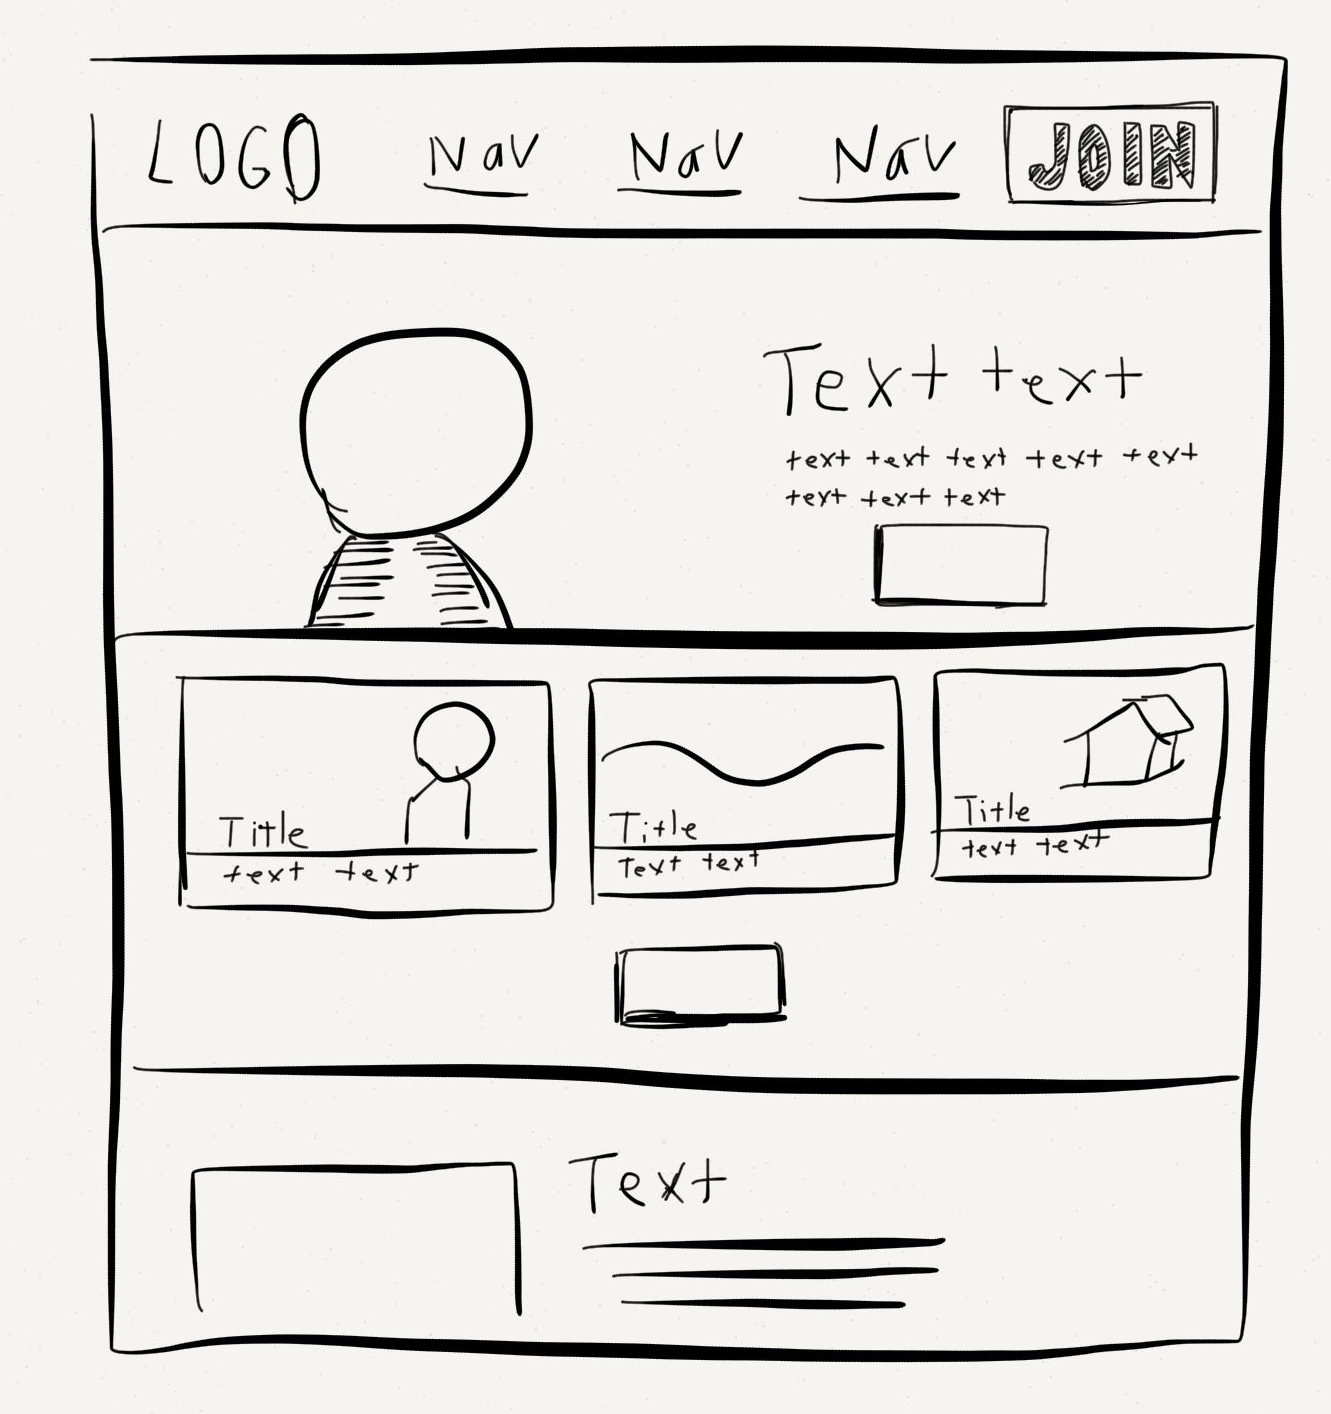 LOGO Nav Nav Nav JOIN
Text text
text text text text text
text text text
Title
text text
Title
Text text
Title
text text
Text